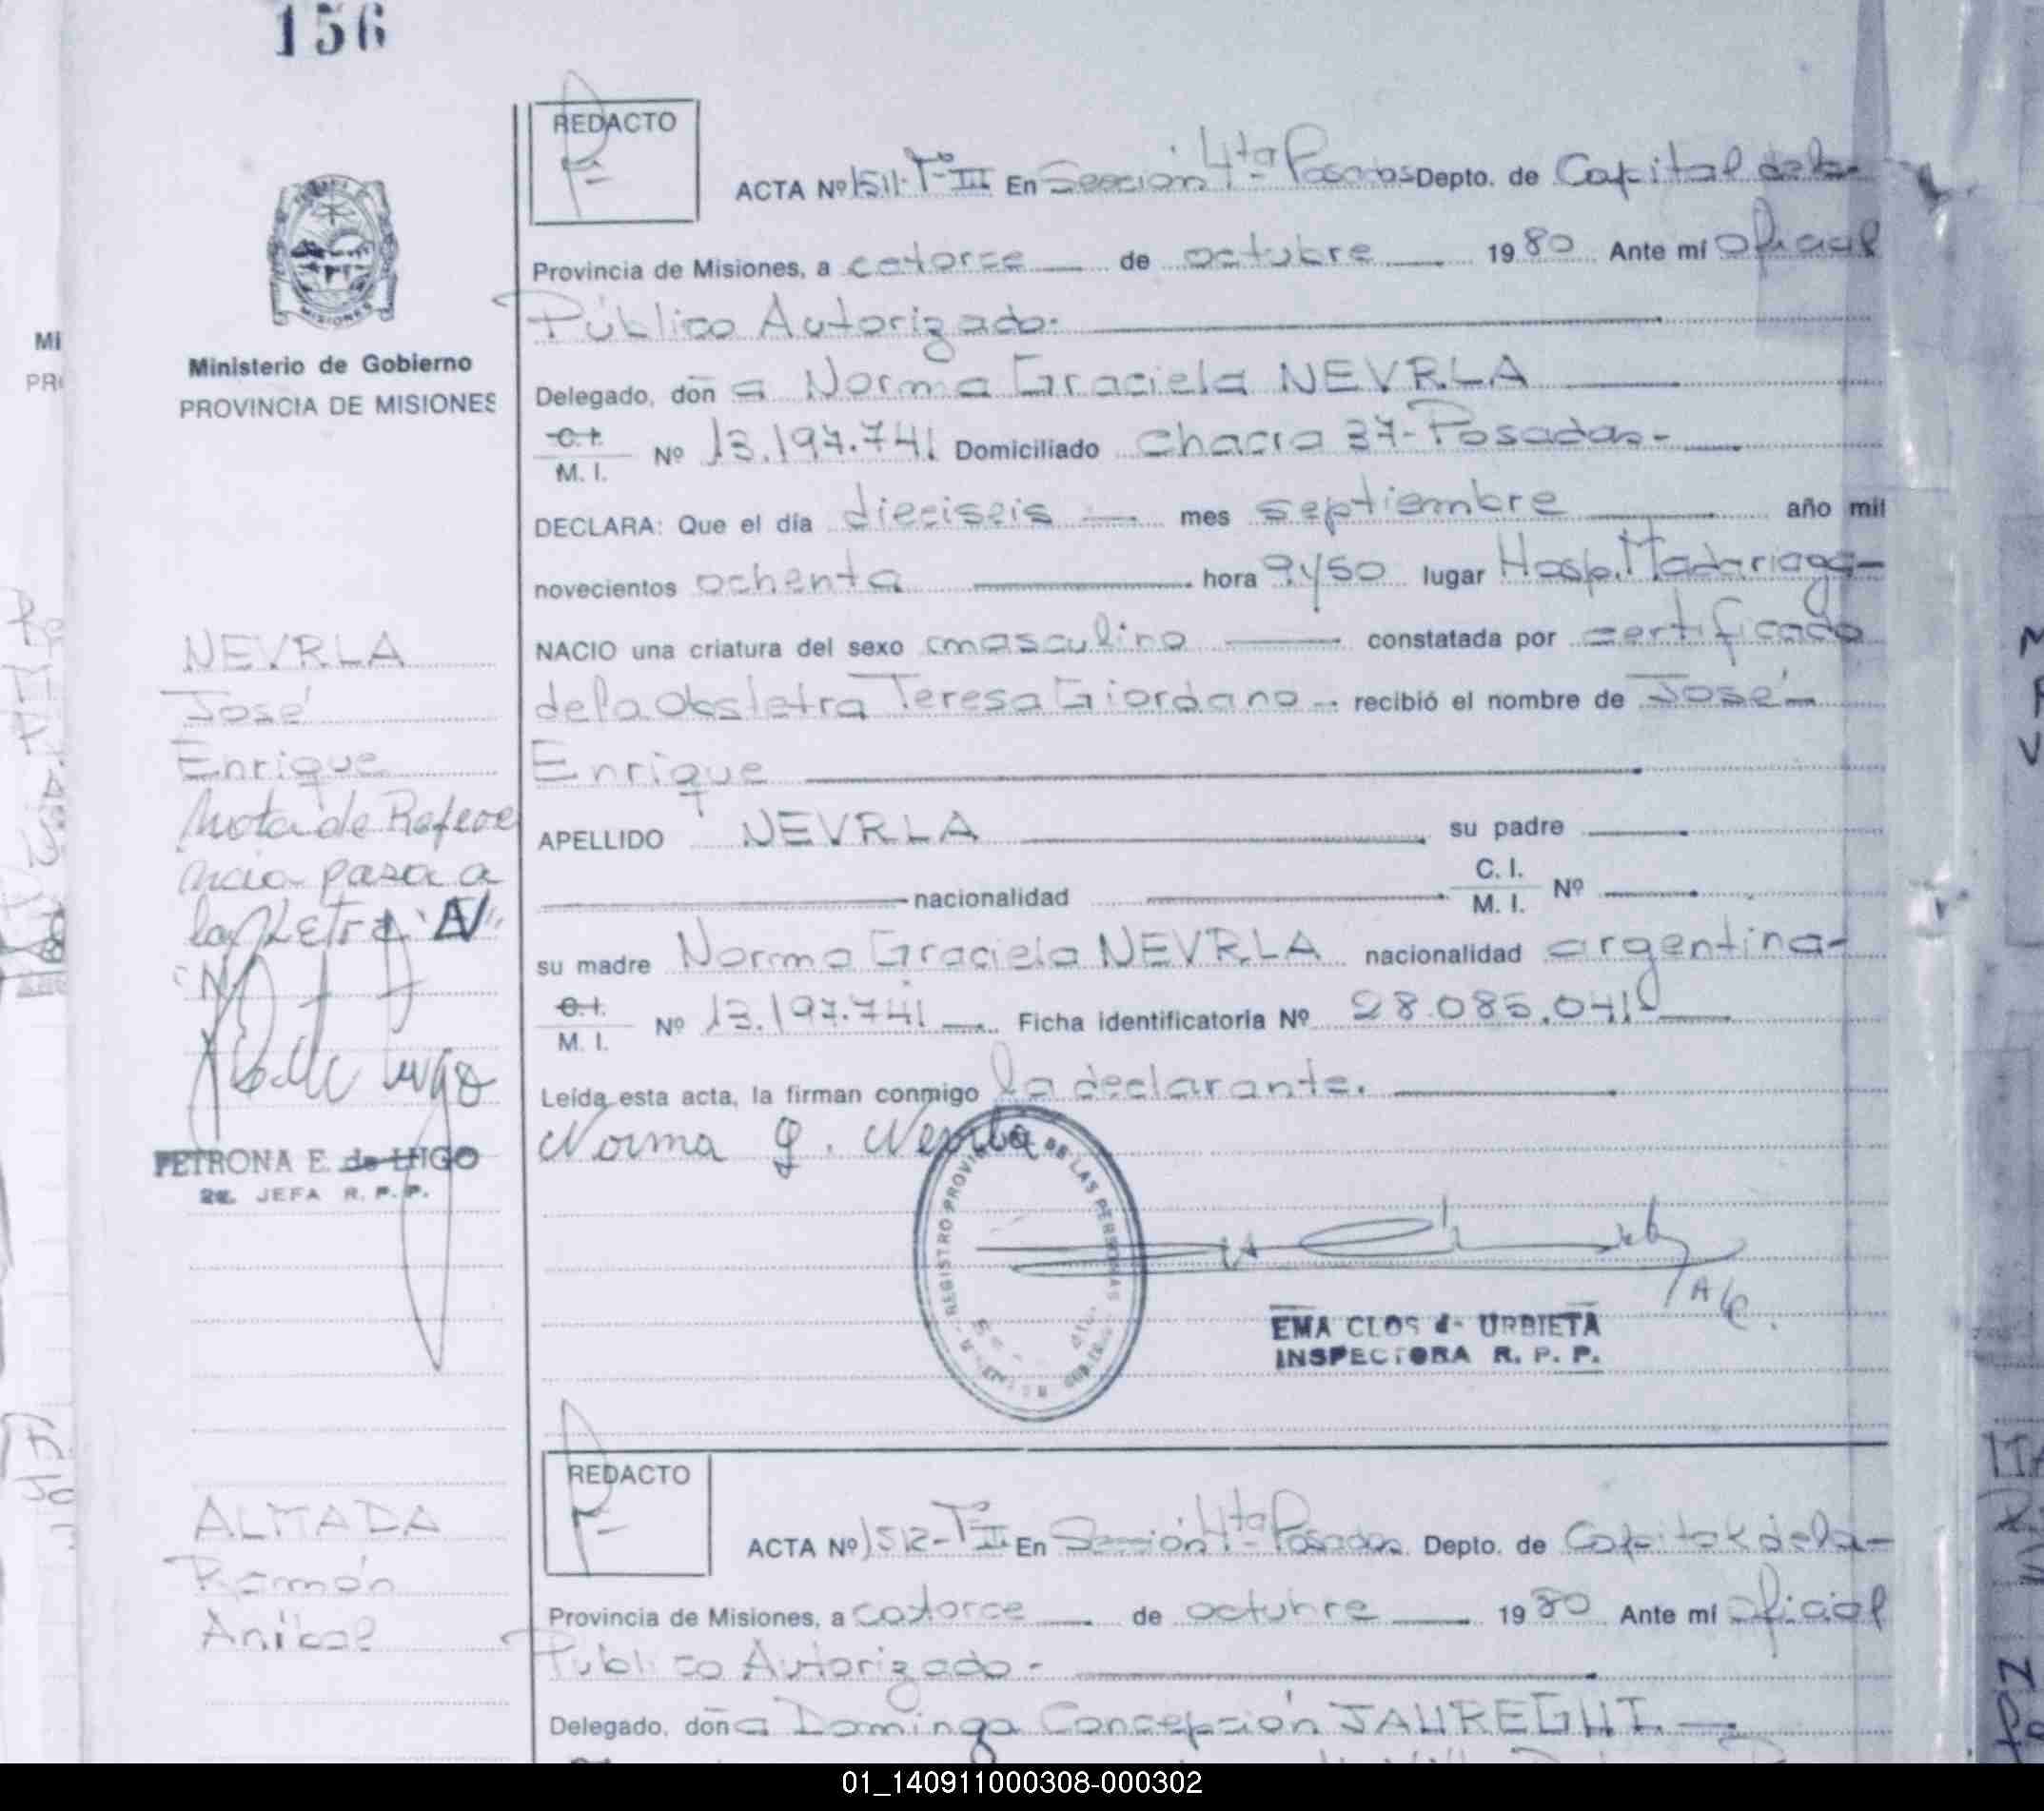 156
REDACTO
ACTA Nº 1511-Tº III En Sección 4ta Posadas Depto. de Capital de la
Provincia de Misiones, a catorce de octubre 1980 Ante mí Oficial
Público Autorizado.
Ministerio de Gobierno
PROVINCIA DE MISIONES
Delegado, doña Norma Graciela NEVRLA
C.I.
M. I. Nº 13.197.741 Domiciliado Chacra 37-Posadas-
DECLARA: Que el día dieciseis mes septiembre año mil
novecientos ochenta hora 9y50 lugar Hosp. Madariaga-
NACIO una criatura del sexo masculino constatada por certificado
de la Obstetra Teresa Giordano - recibió el nombre de José
Enrique
APELLIDO NEVRLA su padre
nacionalidad C. I.
M. I. Nº
su madre Norma Graciela NEVRLA nacionalidad argentina-
C.I.
M. I. Nº 13.197.741 Ficha identificatoria Nº 28.085.041
Leída esta acta, la firman conmigo la declarante.
Norma G. Nevrla
NEVRLA
José
Enrique
Nota de Referen
cia pasa a
la Letra "N"
PETRONA E. de LUGO
2a. JEFA R. P. P.
REGISTRO PROVINCIAL DE LAS PERSONAS
EMA CLOS de URBIETA
INSPECTORA R. P. P.
REDACTO
ACTA Nº 1512-Tº II En Sección 4ta Posadas Depto. de Capital de la-
Provincia de Misiones, a catorce de octubre 1980 Ante mí Oficial
Público Autorizado-
Delegado, doña Dominga Concepción JAUREGUI
ALMADA
Ramón
Anibal
01_140911000308-000302